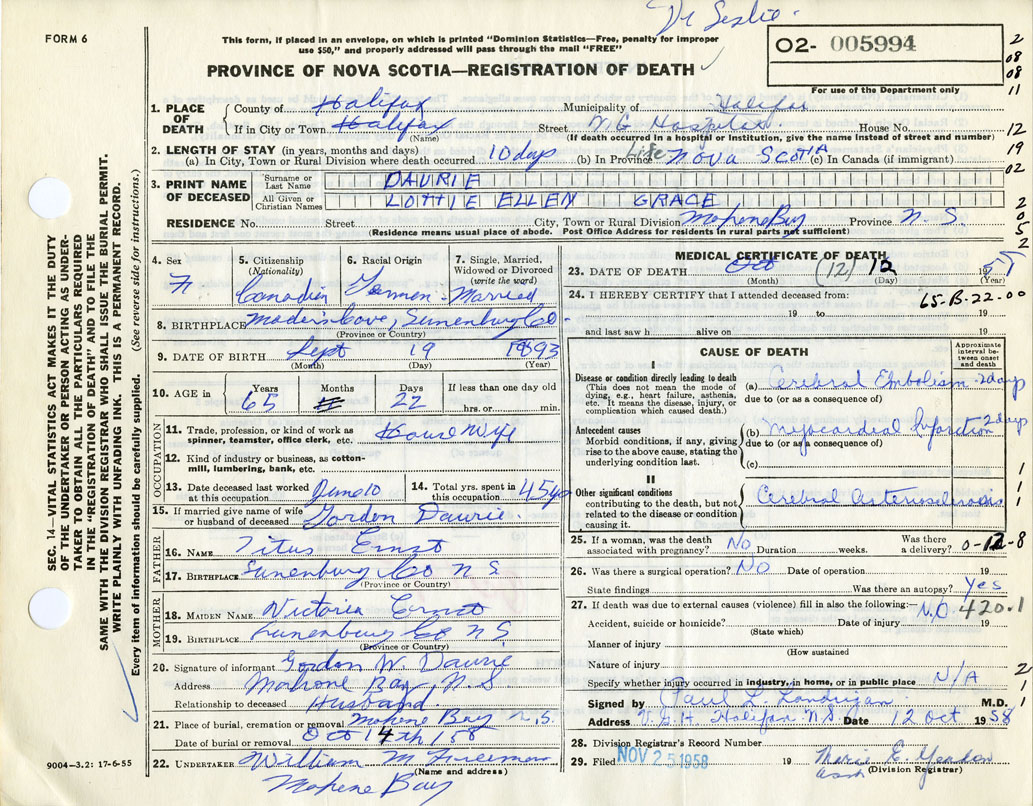 Dr Leslie.
FORM 6
This form, if placed in an envelope, on which is printed "Dominion Statistics—Free, penalty for improper
use $50," and properly addressed will pass through the mail "FREE"
PROVINCE OF NOVA SCOTIA—REGISTRATION OF DEATH
O2- 005994
For use of the Department only
2
08
08
11
12
19
02
2
0
0
5
2
SEC. 14—VITAL STATISTICS ACT MAKES IT THE DUTY
OF THE UNDERTAKER OR PERSON ACTING AS UNDER-
TAKER TO OBTAIN ALL THE PARTICULARS REQUIRED
IN THE "REGISTRATION OF DEATH" AND TO FILE THE
SAME WITH THE DIVISION REGISTRAR WHO SHALL ISSUE THE BURIAL PERMIT.
WRITE PLAINLY WITH UNFADING INK. THIS IS A PERMANENT RECORD.
Every item of information should be carefully supplied. (See reverse side for instructions.)
1. PLACE OF DEATH
County of Halifax Municipality of Halifax
If in City or Town Halifax Street V G Hospital House No.
(Name) (If death occurred in a hospital or institution, give the name instead of street and number)
2. LENGTH OF STAY (in years, months and days)
(a) In City, Town or Rural Division where death occurred 10 days (b) In Province Life Nova Scotia (c) In Canada (if immigrant)
3. PRINT NAME OF DECEASED
Surname or Last Name DAURIE
All Given or Christian Names LOTTIE ELLEN GRACE
RESIDENCE No. Street City, Town or Rural Division Mahone Bay Province N. S.
(Residence means usual place of abode. Post Office Address for residents in rural parts not sufficient)
4. Sex F
5. Citizenship (Nationality) Canadian
6. Racial Origin
7. Single, Married, Widowed or Divorced (write the word) Married
8. BIRTHPLACE Maders Cove, Lunenburg Co.
(Province or Country)
9. DATE OF BIRTH Sept 19 1893
(Month) (Day) (Year)
10. AGE in Years 65 Months Days 22 If less than one day old hrs. or min.
OCCUPATION
11. Trade, profession, or kind of work as spinner, teamster, office clerk, etc. House Wife
12. Kind of industry or business, as cotton-mill, lumbering, bank, etc.
13. Date deceased last worked at this occupation June 10
14. Total yrs. spent in this occupation 45 yr
15. If married give name of wife or husband of deceased Gordon Daurie
FATHER
16. NAME Titus Ernst
17. BIRTHPLACE Lunenburg Co N S
(Province or Country)
MOTHER
18. MAIDEN NAME Victoria Ernst
19. BIRTHPLACE Lunenburg Co N S.
(Province or Country)
20. Signature of informant Gordon W. Daurie
Address Mahone Bay, N. S
Relationship to deceased Husband.
21. Place of burial, cremation or removal Mahone Bay N.S.
Date of burial or removal Oct 14th 158
22. UNDERTAKER William M
(Name and address)
Mahone Bay
9004—3.2: 17-6-55
MEDICAL CERTIFICATE OF DEATH
23. DATE OF DEATH Oct (12) 12 19
(Month) (Day) (Year)
24. I HEREBY CERTIFY that I attended deceased from: 65-B-22-00
19 to 19
and last saw h alive on 19
CAUSE OF DEATH
Approximate interval between onset and death
I
Disease or condition directly leading to death
(This does not mean the mode of dying, e.g., heart failure, asthenia, etc. It means the disease, injury, or complication which caused death.)
(a) Cerebral Embolism 2 days
due to (or as a consequence of)
Antecedent causes
Morbid conditions, if any, giving rise to the above cause, stating the underlying condition last.
(b) Myocardial Infarction 2 days
due to (or as a consequence of)
(c)
II
Other significant conditions
contributing to the death, but not related to the disease or condition causing it.
Cerebral arteriosclerosis
1
1
1
1
25. If a woman, was the death associated with pregnancy? No Duration weeks. Was there a delivery? 0-12-8
26. Was there a surgical operation? No Date of operation 19
State findings Was there an autopsy? Yes
27. If death was due to external causes (violence) fill in also the following:— N.O. 420.1
Accident, suicide or homicide? Date of injury 19
(State which)
Manner of injury
(How sustained
Nature of injury
Specify whether injury occurred in industry, in home, or in public place N/A
2
1
Signed by Paul L. Landrigan M.D.
Address V. G. H Halifax N.S. Date 12 Oct 1958
28. Division Registrar's Record Number
29. Filed NOV 25 1958 19 Marie E.
Asst (Division Registrar)